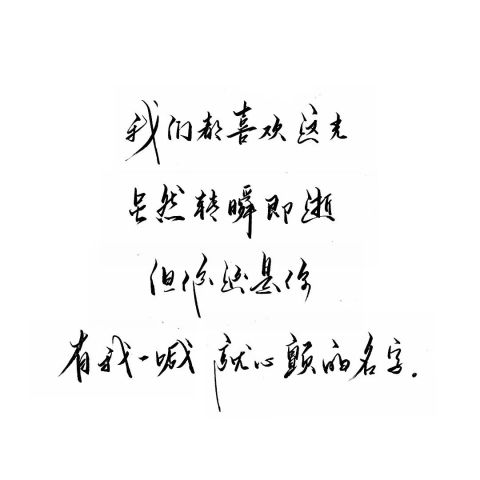 我们都喜欢这光
虽然转瞬即逝
但你还是你
有我一喊 就心颤的名字.